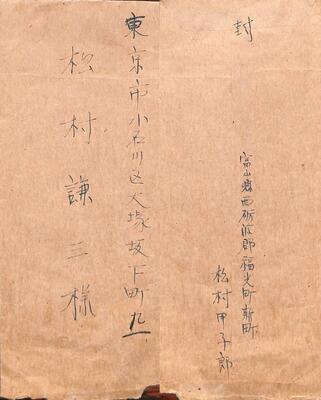 東京市小石川区大塚坂下町九一
松村謙三様
封
富山県西砺波郡福光町新町
松村甲子郎